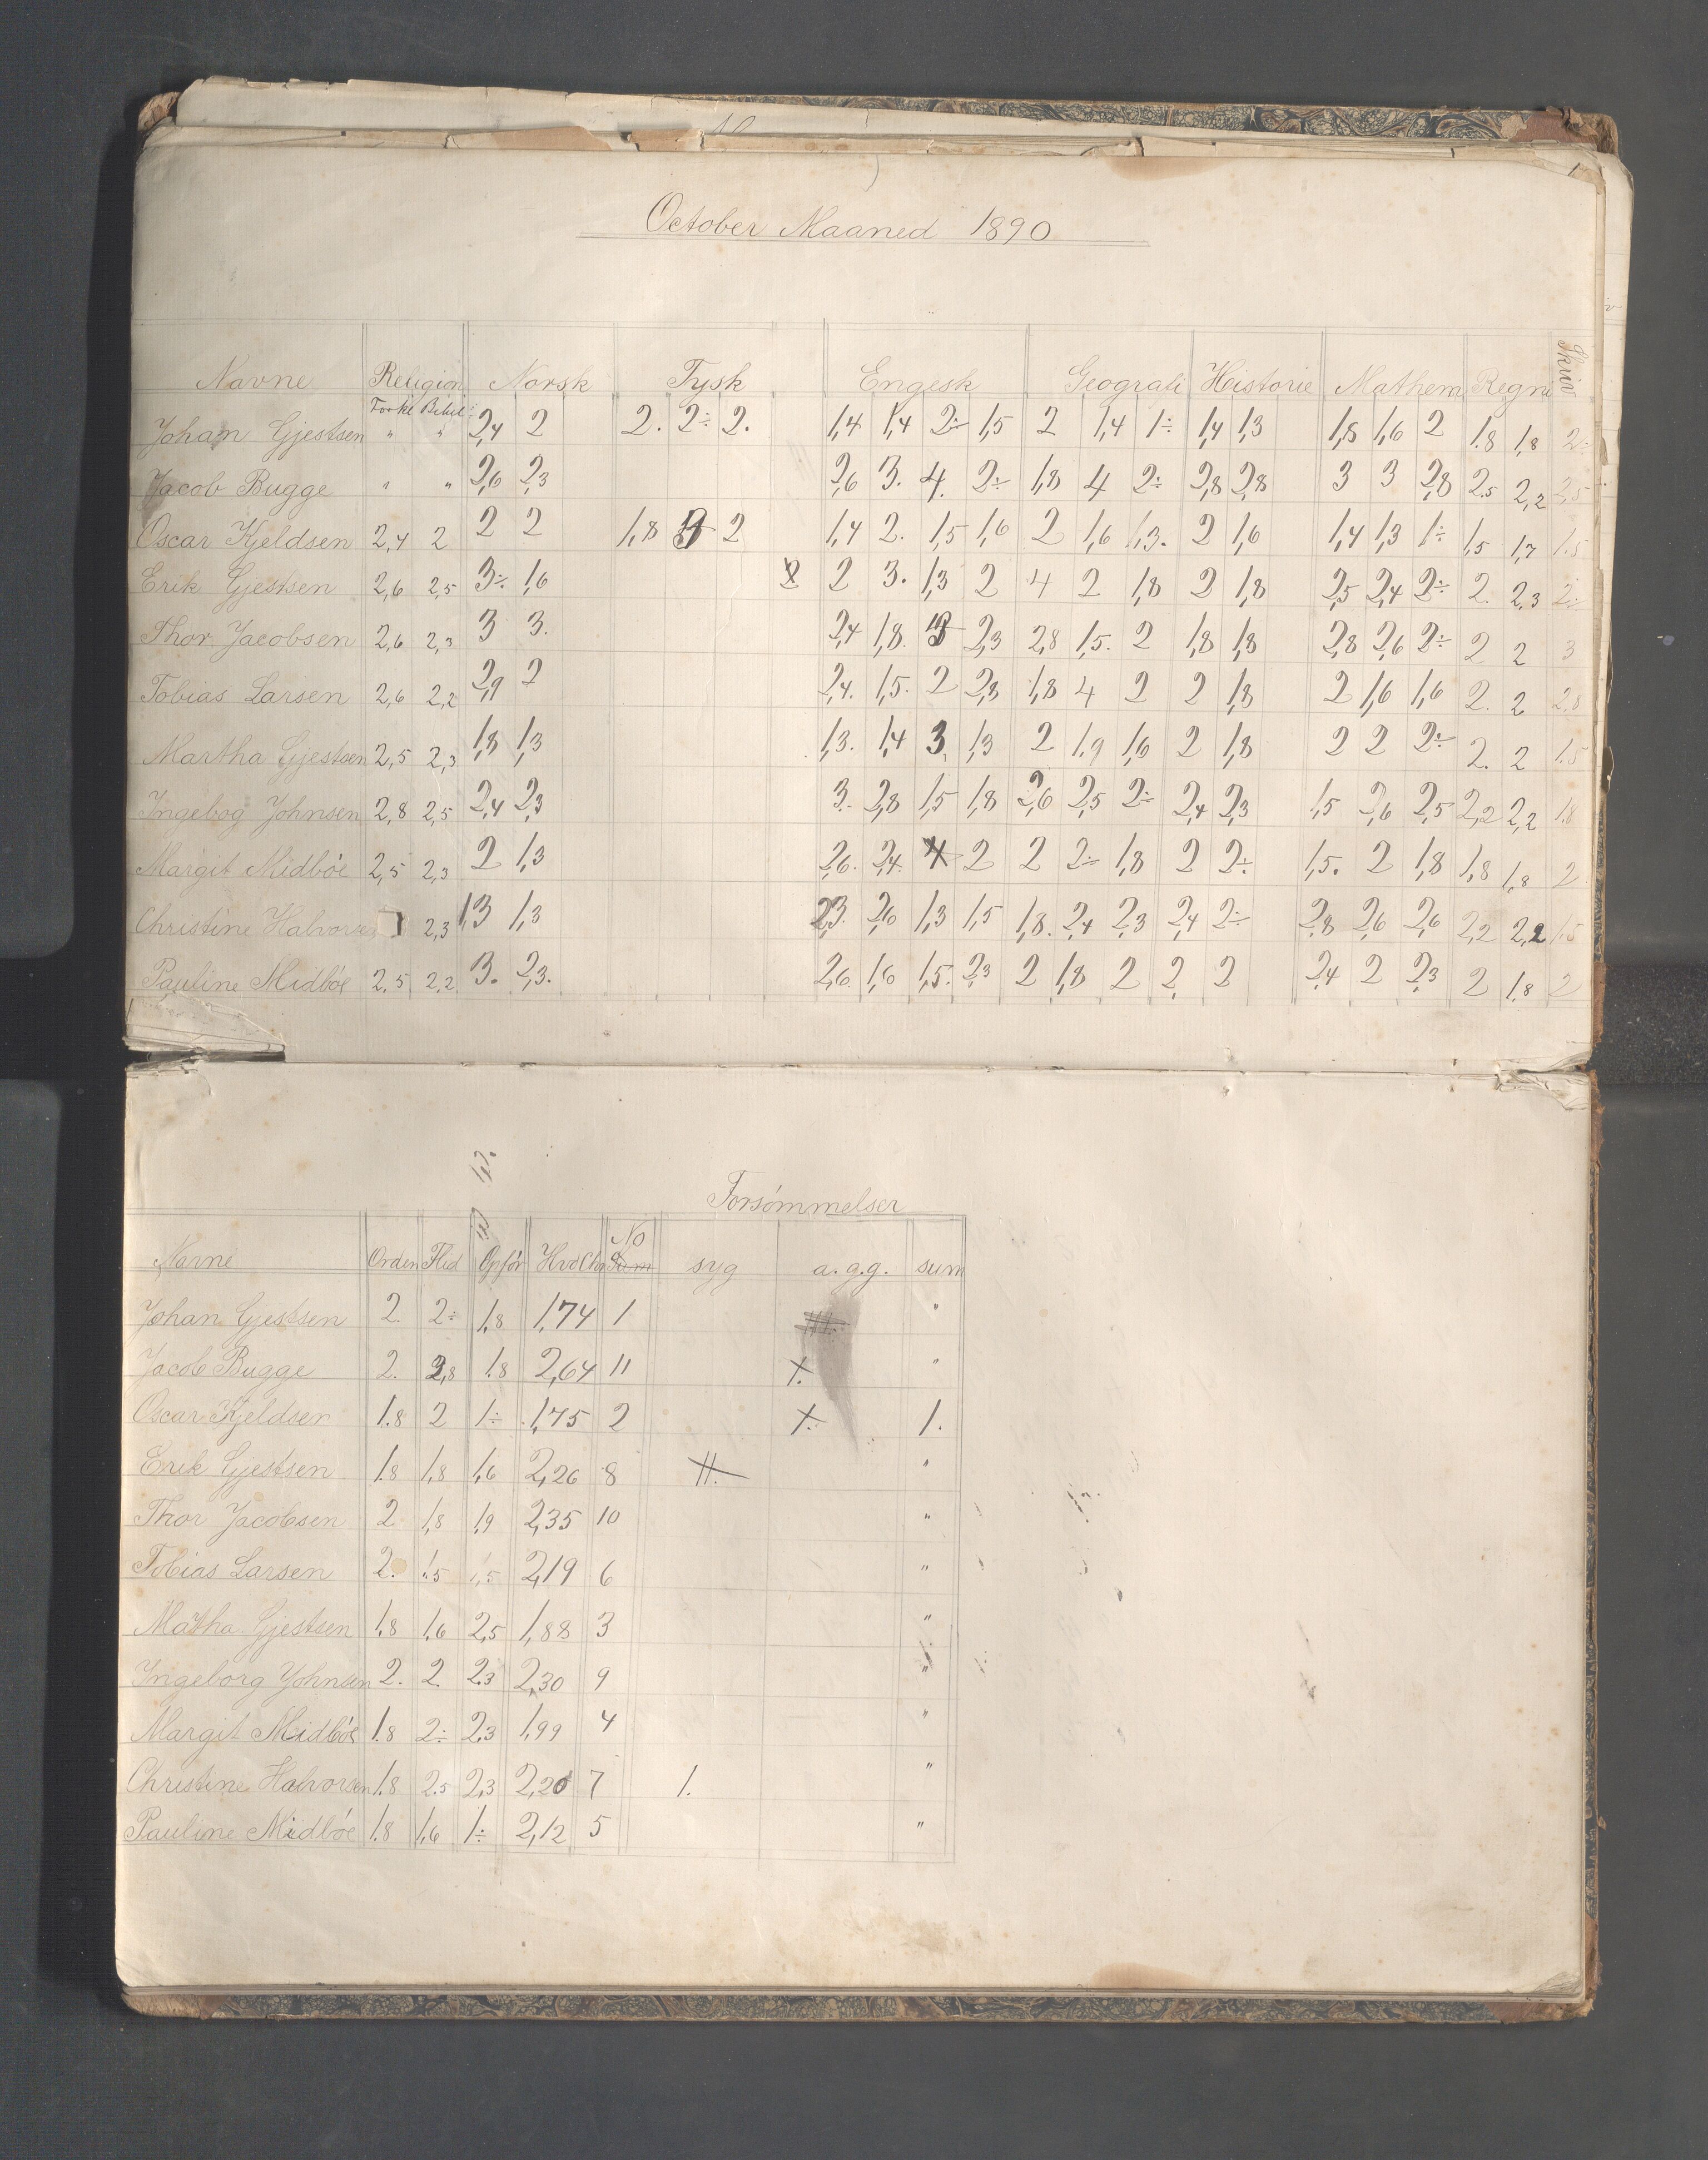 October Maaned 1890
Navne Religion Norsk Tysk Engesk Geografi Historie Mathem Regni Skriv
Forkl Bibel
Johan Gjestsen " " 2,4 2 2. 2÷ 2. 1,4 1,4 2÷ 1,5 2 1,4 1÷ 1,4 1,3 1,8 1,6 2 1.8 1,8 2÷
Jacob Bugge " " 2,6 2,3 2,6 3. 4. 2÷ 1,8 4 2÷ 2,8 2,8 3 3 2,8 2.5 2,2 2,5
Oscar Kjeldsen 2,4 2 2 2 1,8 2 1,4 2. 1,5 1,6 2 1,6 1,3. 2 1,6 1,4 1,3 1÷ 1,5 1,7 1.5
Erik Gjestsen 2,6 2,5 3÷ 1,6 2 3. 1,3 2 4 2 1,8 2 1,8 2,5 2,4 2÷ 2. 2,3 2÷
Thor Jacobsen 2,6 2,3 3 3. 2,4 1,8. 2,3 2,8 1,5. 2 1,8 1,8 2,8 2,6 2÷ 2 2 3
Tobias Larsen 2,6 2,2 2,9 2 2,4. 1,5. 2 2,3 1,8 4 2 2 1,8 2 1,6 1,6 2. 2 2,8
Martha Gjestsen 2,5 2,3 1,8 1,3 1,3. 1,4 3 1,3 2 1,9 1,6 2 1,8 2 2 2÷ 2. 2 1.5
Ingebog Johnsen 2,8 2,5 2,4 2,3 3. 2,8 1,5 1,8 2,6 2,5 2÷ 2,4 2,3 1,5 2,6 2,5 2,2 2,2 1.8
Margit Midböe 2,5 2,3 2 1,3 2,6. 2,4. 4 2 2 2÷ 1,8 2 2÷ 1,5. 2 1,8 1,8 1,8 2
Christine Halvorsen 2,3 1,3 1,3 2,3. 2,6 1,3 1,5 1,8. 2,4 2,3 2,4 2÷ 2,8 2,6 2,6 2,2 2,2 1,5
Pauline Midböe 2,5 2,2 3. 2,3. 2,6. 1,6 1,5. 2,3 2 1,8 2 2 2 2,4 2 2,3 2 1,8 2
Forsömmelser
Navne Orden Flid Opför HvdChr No Sum syg a.g.g. sum
Johan Gjestsen 2. 2÷ 1,8 1,74 1 "
Jacob Bugge 2. 2,8 1.8 2,64 11 1. "
Oscar Kjeldsen 1.8 2 1÷ 1,75 2 1. 1.
Erik Gjestsen 1.8 1,8 1,6 2,26 8 11. "
Thor Jacobsen 2 1,8 1,9 2,35 10 "
Tobias Larsen 2. 1.5 1,5 2,19 6 "
Matha Gjestsen 1,8 1,6 2,5 1,88 3 "
Ingeborg Johnsen 2. 2. 2.3 2,30 9 "
Margit Midböe 1.8 2÷ 2,3 1,99 4 "
Christine Halvorsen 1.8 2.5 2,3 2,20 7 1. "
Pauline Midböe 1.8 1,6 1÷ 2,12 5 "